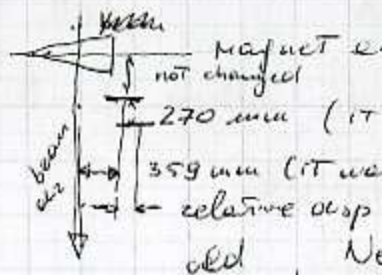 beam
magnet e
not changed
270 mm (IT
359 mm (IT wa
relative disp
beam
old Ne